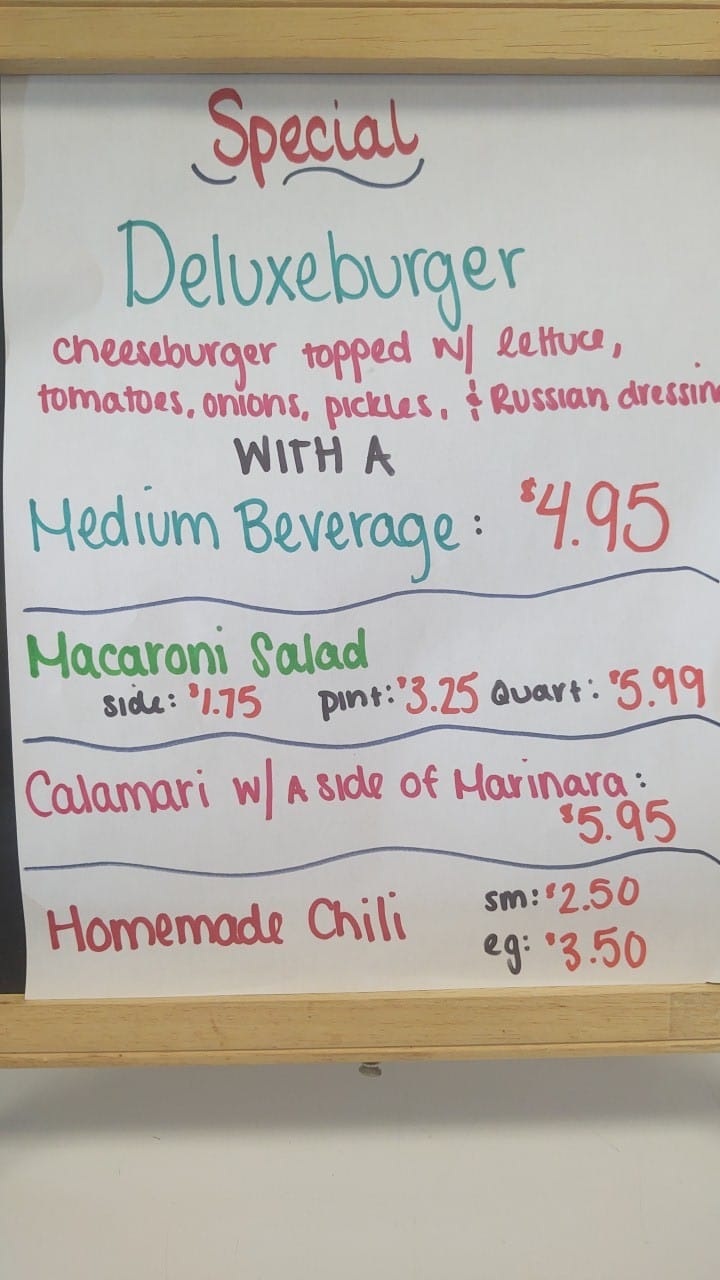 Special
Deluxeburger
cheeseburger topped w/ lettuce,
tomatoes, onions, pickles, & Russian dressin
WITH A
Medium Beverage: $4.95
Macaroni Salad
side: $1.75 pint: $3.25 Quart: $5.99
Calamari w/ A side of Marinara:
$5.95
Homemade Chili
sm: $2.50
eg: $3.50